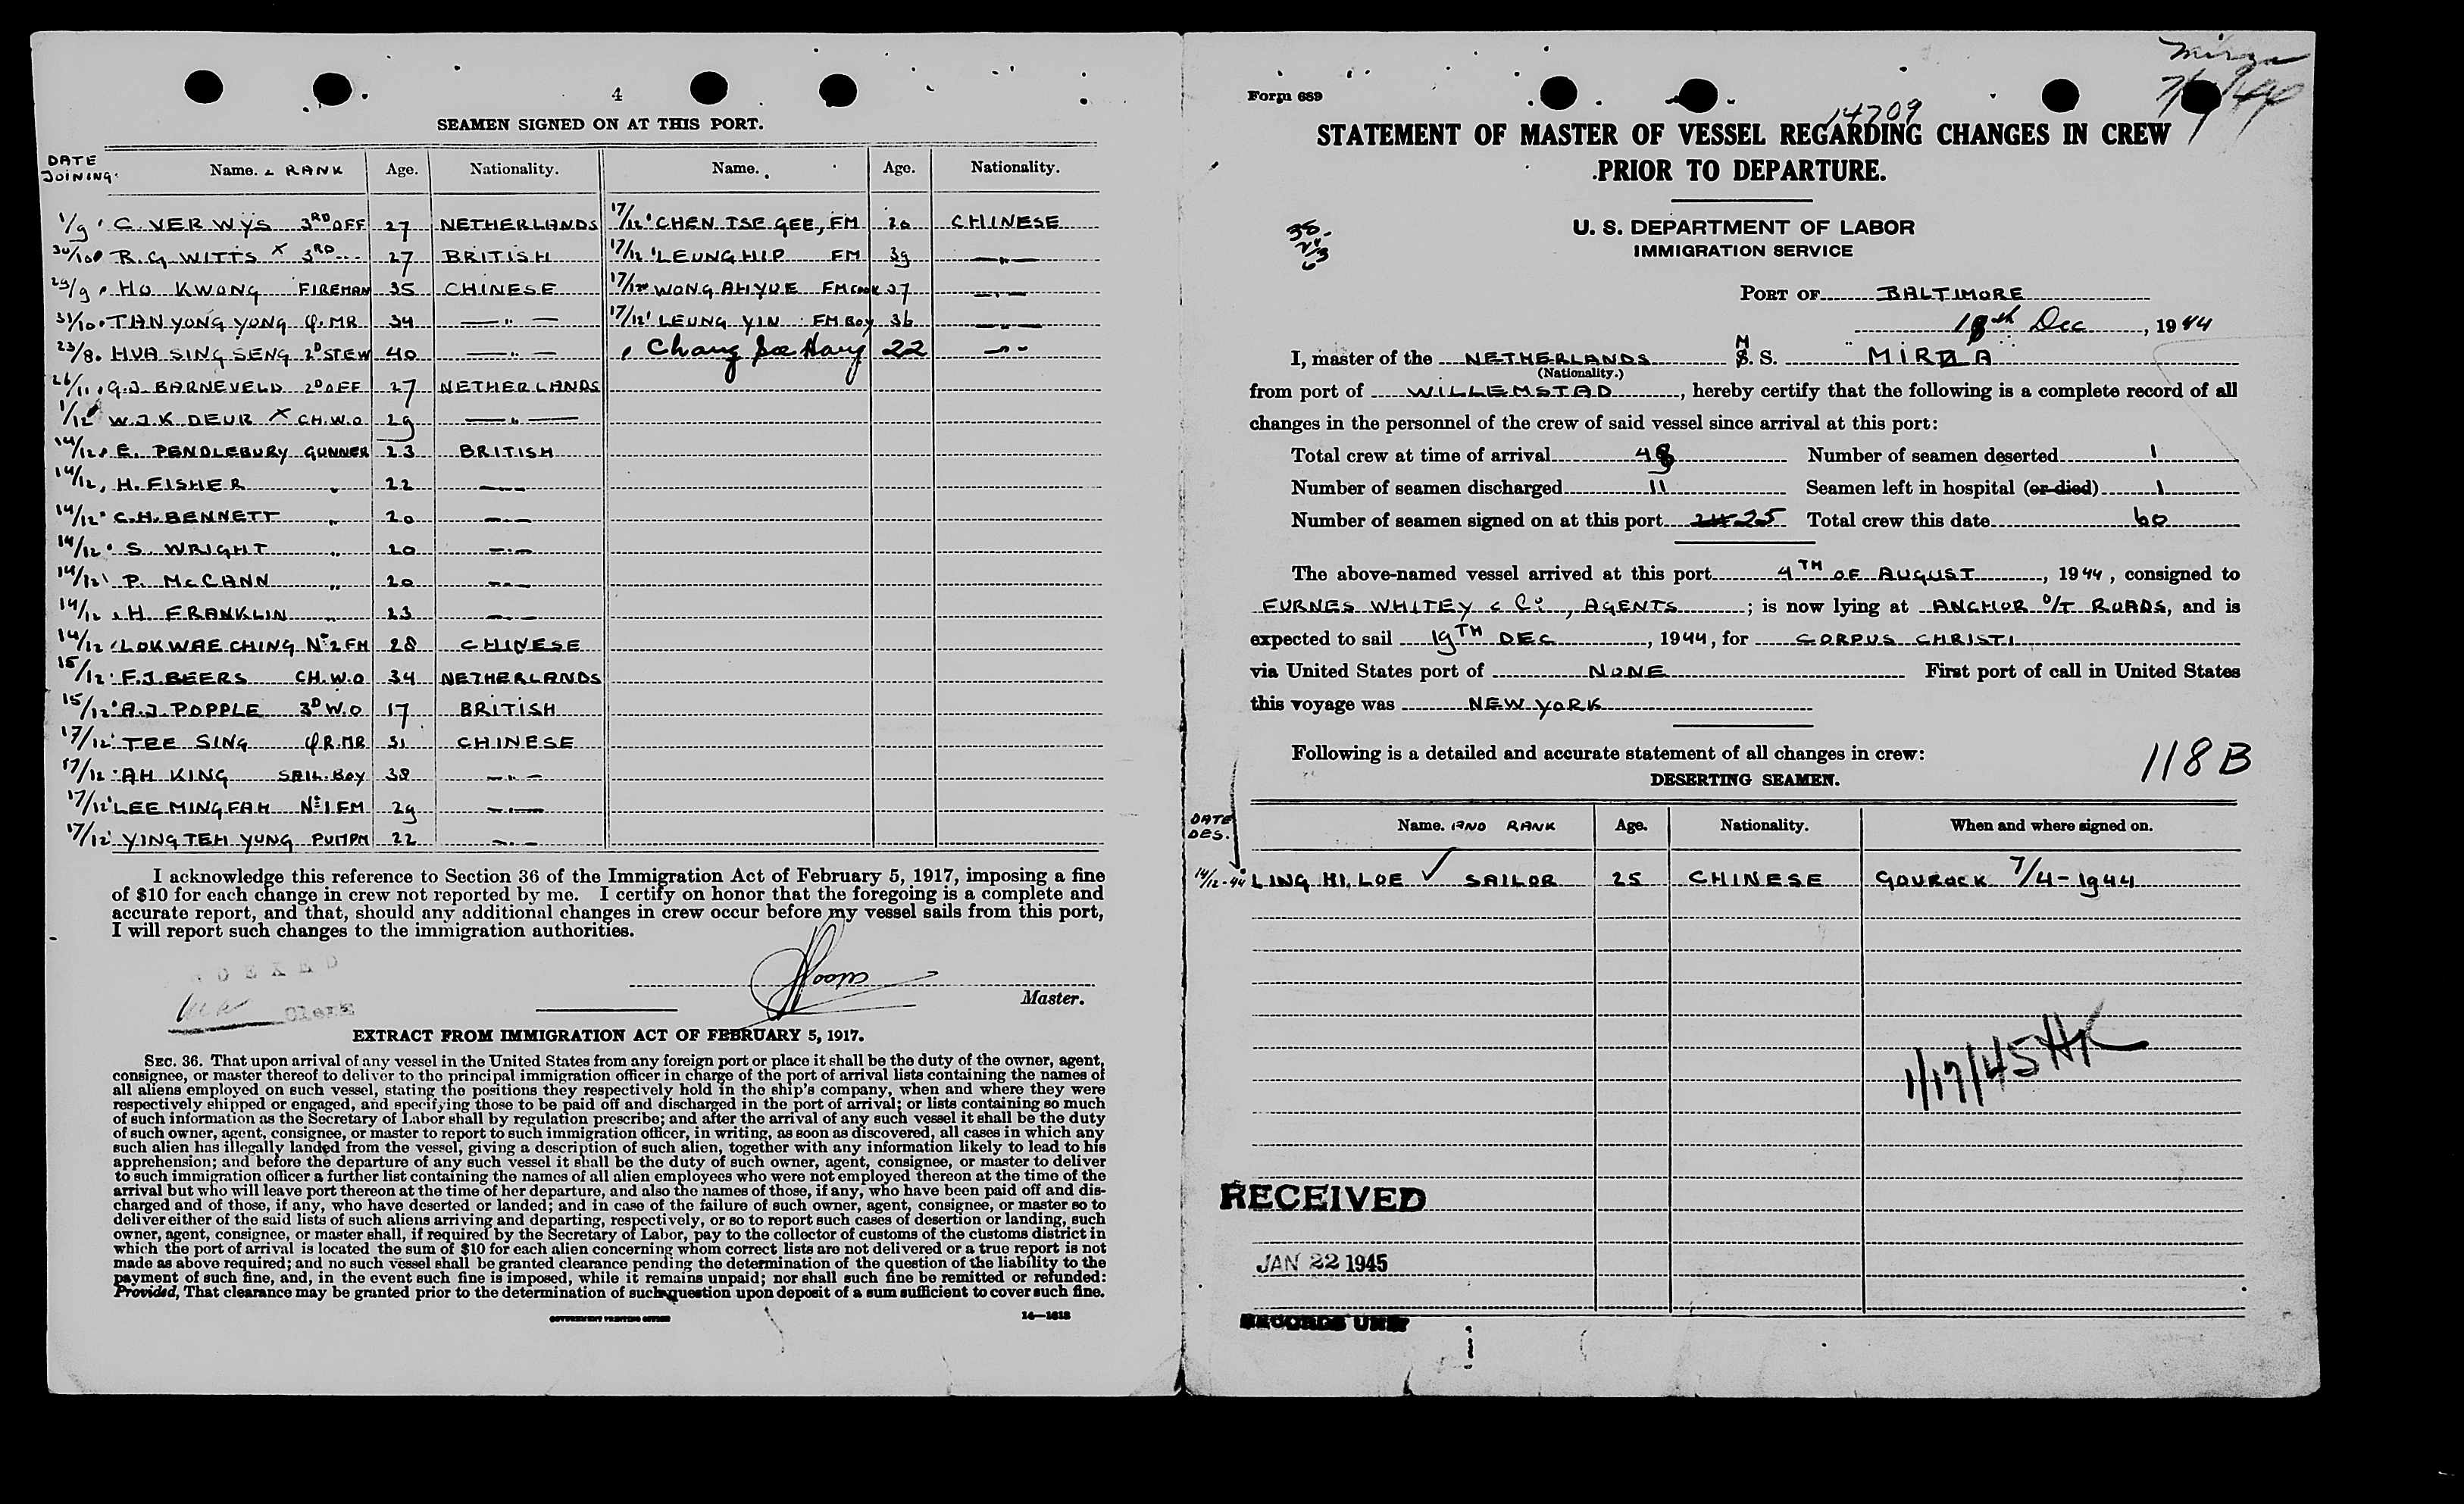 4
SEAMEN SIGNED ON AT THIS PORT.
DATE JOINING. Name. & RANK Age. Nationality. Name. Age. Nationality.
1/9 C. VER WYS 3RD OFF 27 NETHERLANDS 17/12 CHEN TSE GEE, FM 20 CHINESE
30/10 R. G. WITTS X 3RD 27 BRITISH 17/12 LEUNG HIP FM 39 —"—
29/9 HO KWONG FIREMAN 35 CHINESE 17/12 WONG AH YUE FM COOK 27 —"—
31/10 TAN YONG YONG Q. MR 34 —"— 17/12 LEUNG YIN FM BOY 36 —"—
23/8 HUA SING SENG 2D STEW 40 —"— Chang Hang 22 —"—
26/11 G.J. BARNEVELD 2D OFF 27 NETHERLANDS
1/12 W.J.K. DEUR X CH.W.O 29 —"—
14/12 E. PENDLEBURY GUNNER 23 BRITISH
14/12 H. FISHER " 22 —"—
14/12 C.H. BENNETT " 20 —"—
14/12 S. WRIGHT " 20 —"—
14/12 P. McCANN " 20 —"—
14/12 H. FRANKLIN " 23 —"—
14/12 LOK WAE CHING No 2 FM 28 CHINESE
15/12 F.J. BEERS CH.W.O 34 NETHERLANDS
15/12 A.J. POPPLE 3D W.O 17 BRITISH
17/12 TEE SING Q R.MR 31 CHINESE
17/12 AH KING SAIL. BOY 38 —"—
17/12 LEE MING FAH No 1 FM 29 —"—
17/12 YING TEH YUNG PUMPM 22 —"—
I acknowledge this reference to Section 36 of the Immigration Act of February 5, 1917, imposing a fine
of $10 for each change in crew not reported by me. I certify on honor that the foregoing is a complete and
accurate report, and that, should any additional changes in crew occur before my vessel sails from this port,
I will report such changes to the immigration authorities.
Master.
Clerk
EXTRACT FROM IMMIGRATION ACT OF FEBRUARY 5, 1917.
SEC. 36. That upon arrival of any vessel in the United States from any foreign port or place it shall be the duty of the owner, agent,
consignee, or master thereof to deliver to the principal immigration officer in charge of the port of arrival lists containing the names of
all aliens employed on such vessel, stating the positions they respectively hold in the ship's company, when and where they were
respectively shipped or engaged, and specifying those to be paid off and discharged in the port of arrival; or lists containing so much
of such information as the Secretary of Labor shall by regulation prescribe; and after the arrival of any such vessel it shall be the duty
of such owner, agent, consignee, or master to report to such immigration officer, in writing, as soon as discovered, all cases in which any
such alien has illegally landed from the vessel, giving a description of such alien, together with any information likely to lead to his
apprehension; and before the departure of any such vessel it shall be the duty of such owner, agent, consignee, or master to deliver
to such immigration officer a further list containing the names of all alien employees who were not employed thereon at the time of the
arrival but who will leave port thereon at the time of her departure, and also the names of those, if any, who have been paid off and dis-
charged and of those, if any, who have deserted or landed; and in case of the failure of such owner, agent, consignee, or master so to
deliver either of the said lists of such aliens arriving and departing, respectively, or so to report such cases of desertion or landing, such
owner, agent, consignee, or master shall, if required by the Secretary of Labor, pay to the collector of customs of the customs district in
which the port of arrival is located the sum of $10 for each alien concerning whom correct lists are not delivered or a true report is not
made as above required; and no such vessel shall be granted clearance pending the determination of the question of the liability to the
payment of such fine, and, in the event such fine is imposed, while it remains unpaid; nor shall such fine be remitted or refunded:
Provided, That clearance may be granted prior to the determination of such question upon deposit of a sum sufficient to cover such fine.
GOVERNMENT PRINTING OFFICE 14—1618
Mirza
Form 689
14709
STATEMENT OF MASTER OF VESSEL REGARDING CHANGES IN CREW
PRIOR TO DEPARTURE.
U. S. DEPARTMENT OF LABOR
IMMIGRATION SERVICE
PORT OF BALTIMORE
18th Dec, 1944
I, master of the NETHERLANDS M. S. MIRZA
(Nationality.)
from port of WILLEMSTAD, hereby certify that the following is a complete record of all
changes in the personnel of the crew of said vessel since arrival at this port:
Total crew at time of arrival 48 Number of seamen deserted 1
Number of seamen discharged 11 Seamen left in hospital (or died) 1
Number of seamen signed on at this port 24 25 Total crew this date 60
The above-named vessel arrived at this port 4TH OF AUGUST, 1944, consigned to
FURNES WHITEY & Co, AGENTS; is now lying at ANCHOR O/T ROADS, and is
expected to sail 19TH DEC, 1944, for CORPUS CHRISTI
via United States port of NONE First port of call in United States
this voyage was NEW YORK
Following is a detailed and accurate statement of all changes in crew:
118 B
DESERTING SEAMEN.
DATE DES. Name. AND RANK Age. Nationality. When and where signed on.
14/12-44 LING HI, LOE ✓ SAILOR 25 CHINESE GOUROCK 7/4-1944
1/17/45 HK
RECEIVED
JAN 22 1945
RECORDS UNIT